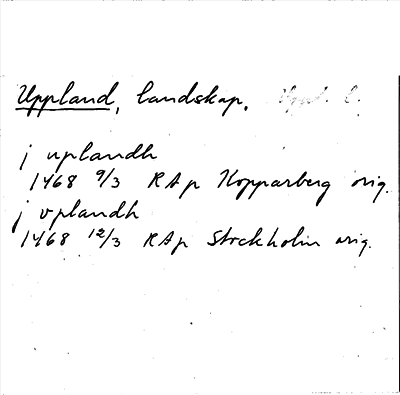 Uppland, landskap.
j uplandh
1468 9/3 RAp Kopparberg orig.
j vplandh
1468 12/3 RAp Stockholm orig.